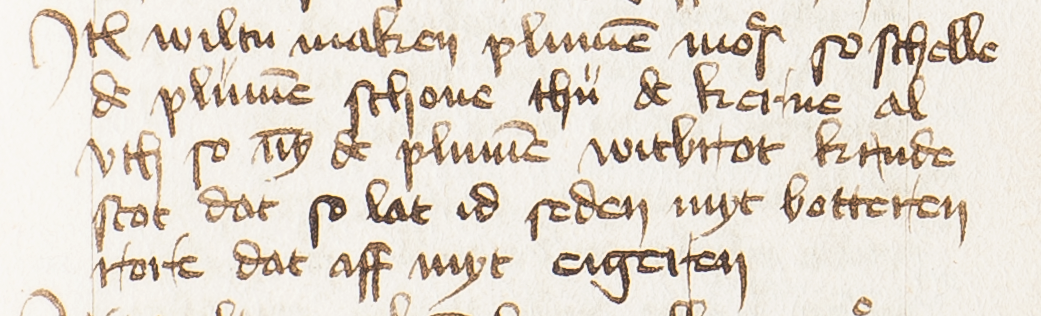 Itē wiltu maken plumē mos so schelle
de plumē schone thu de kerne al
vth so nȳ de plumē witbrot krude
stot dat so lat id seden myt botteren
rore dat aff myt eigeren